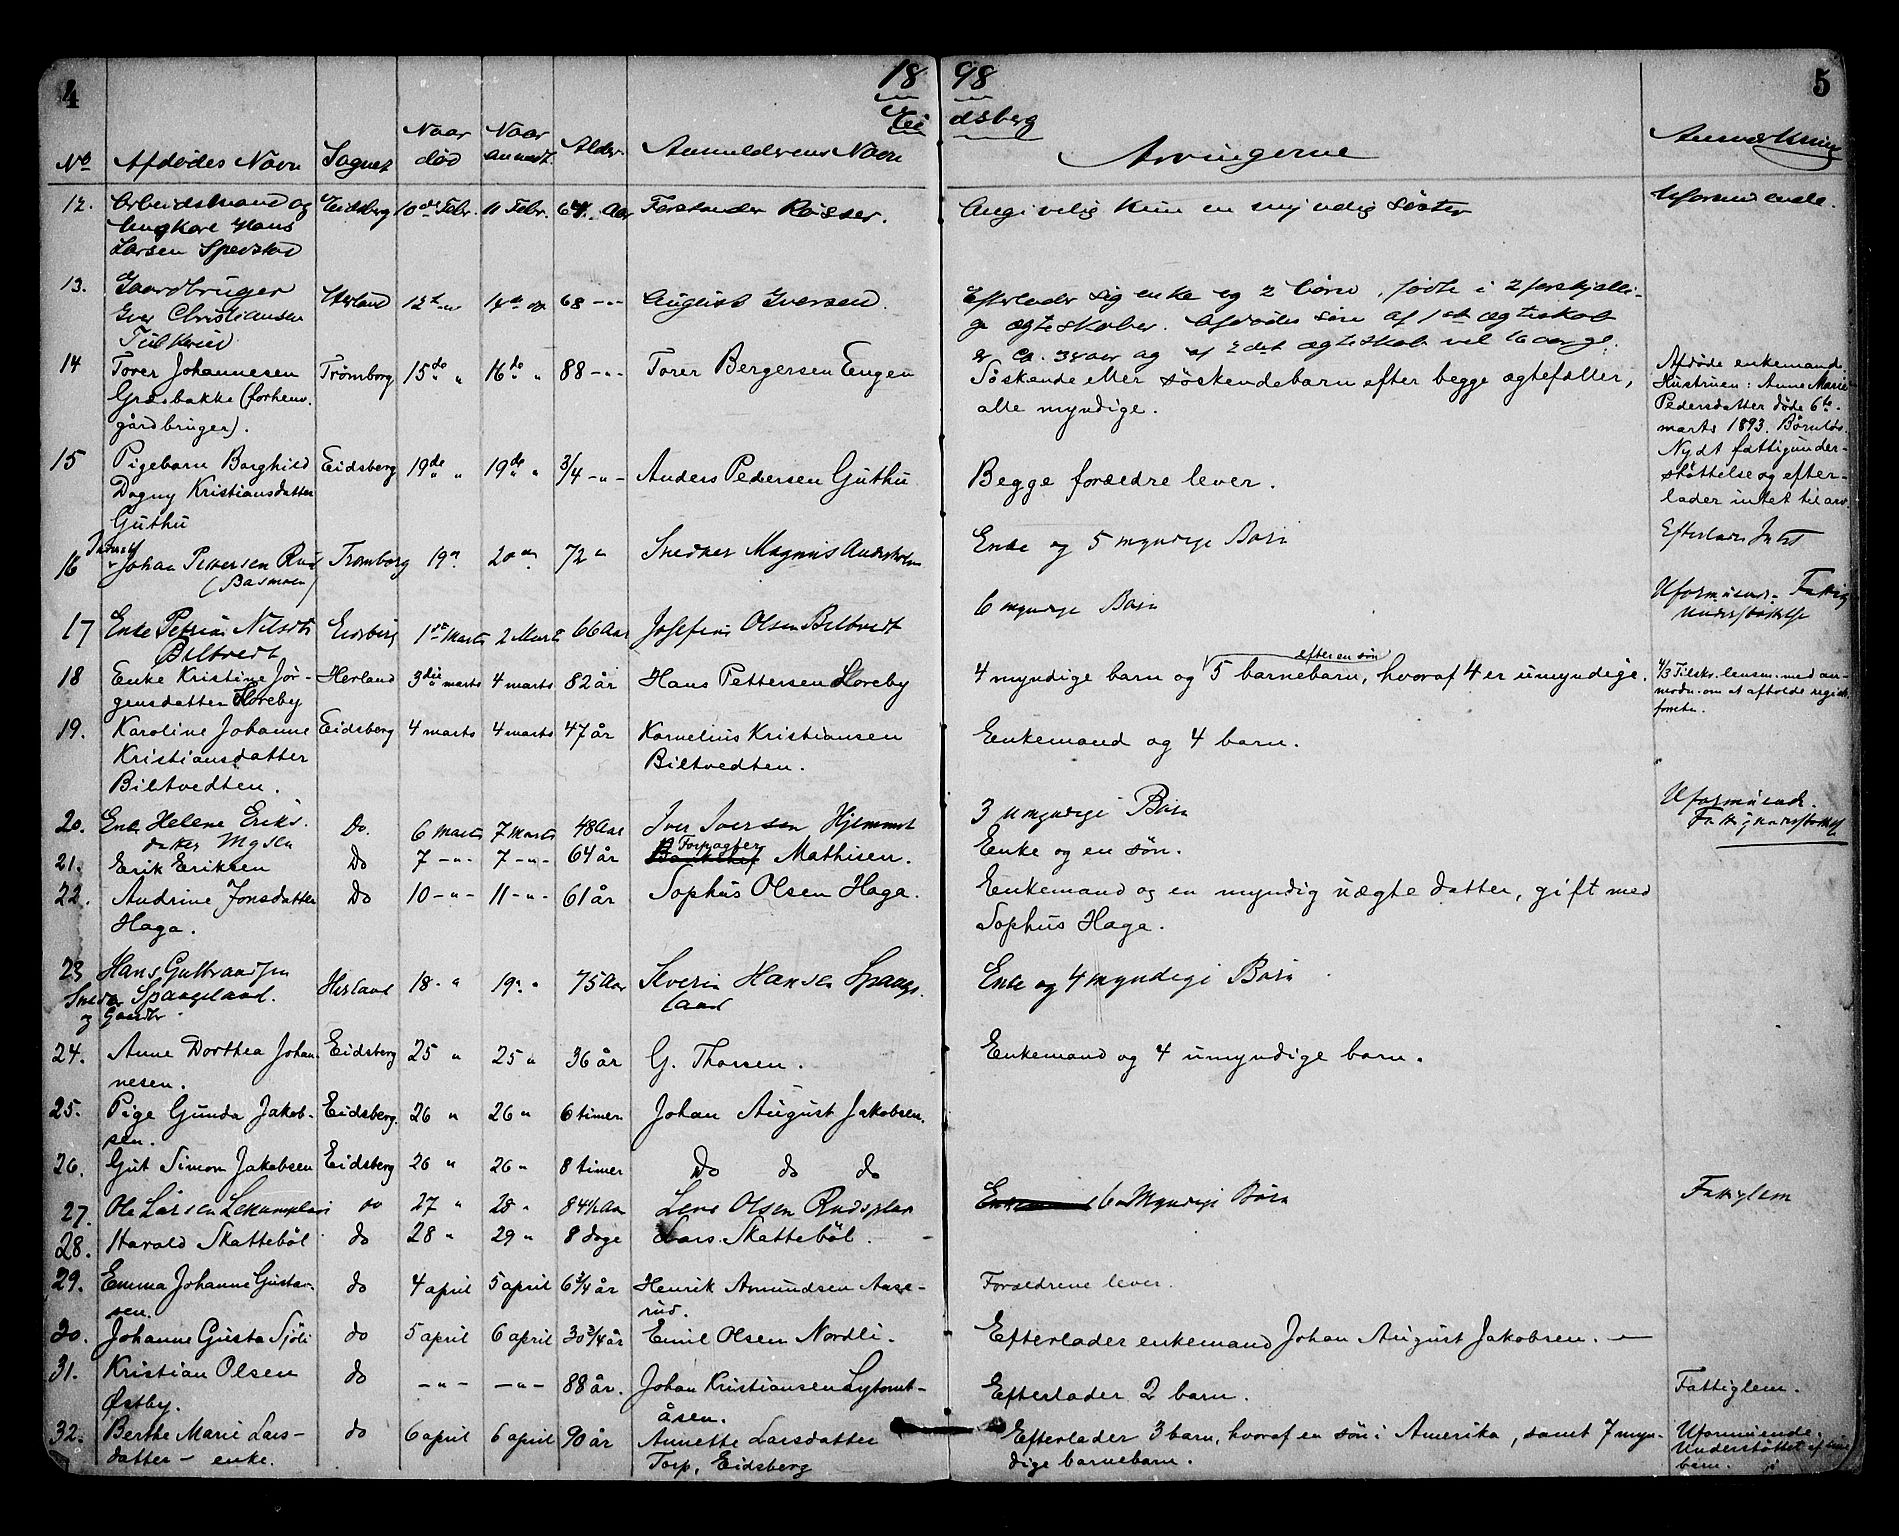 4
18 98
5
Eidsberg
No Afdødes Navn Sognet Naar død Naar anmeldt Alder Anmelderens Navn Arvingerne Anmærkning
12. Arbeidsmand og Eidsberg 10de Febr. 11 Febr. 64 Aar Forstander Røsser. Angivelig kun en myndig søster Uformuende.
Ungkarl Hans
Larsen Spedstad
13. Gaardbruger Herland 12te " 14de " 68 -"- August Iversen. Efterlader sig enke og 2 børn, fødte i 2 forskjelli-
Iver Christiansen ge ægteskaber. Afdødes søn af 1ste ægteskab
er ca. 38 aar og af 2det ægteskab vel 16 aar gl.
14 Torer Johannesen Trømborg 15de " 16de " 88 -"- Torer Bergersen Engen Søskende eller søskendebarn efter begge ægtefæller, Afdøde enkemand.
Græsbakke (forhenv. alle myndige. Hustruen: Anne Marie
gårdbruger). Pedersdatter døde 6te
marts 1893. Barnløs.
15 Pigebarn Borghild Eidsberg 19de " 19de " 3/4 -"- Anders Pedersen Guthu Begge forældre lever. Nydt fattigunder-
Dagny Kristiansdatter støttelse og efter-
Guthu lader intet til arv.
16 Johan Pettersen Rud Trømborg 19 " 20 " 72 " Snedker Magnus Andersen Enke og 5 myndige Børn Efterlader Intet
(Basmoen)
17 Enke Petrine Nilsdtr Eidsberg 1ste Marts 2 Marts 66 Aar Josefine Olsen Biltvedt 6 myndige Børn Uformuende. Fattig
Biltvedt Understøttelse
18 Enke Kristine Jør- Herland 3die marts 4 marts 82 år Hans Pettersen Horeby 4 myndige barn og efter en søn 5 barnebarn, hvoraf 4 er umyndige. 4/3 Tilskr. lensm. med an-
gensdatter Horeby modn. om at afholde registr.
forretn.
19. Karoline Johanne Eidsberg 4 marts 4 marts 47 år Kornelius Kristiansen Enkemand og 4 barn.
Kristiansdatter Biltvedten.
Biltvedten.
20. Enke Helene Eriks- Do. 6 Marts 7 Marts 48 Aar Iver Iversen 3 umyndige Børn Uformuende.
datter Mysen Fattigunderstøttet
21. Erik Eriksen Do 7 -"- 7 -"- 64 år Forpagter Mathisen. Enke og en søn.
22. Andrine Jonsdatter Do 10 -"- 11 -"- 61 år Sophus Olsen Haga. Enkemand og en myndig uægte datter, gift med
Haga. Sophus Haga.
23 Hans Gulbrandsen Herland 18 - " 19 " 75 Aar Severin Hansen Spaags- Enke og 4 myndige Børn
Smed Spaageland. land
og Gaardbr.
24. Anne Dorthea Johan- Eidsberg 25 " 25 " 36 år G. Thorsen. Enkemand og 4 umyndige barn.
nesen.
25. Pige Gunda Jakob- Eidsberg. 26 " 26 " 6 timer Johan August Jakobsen.
sen.
26. Gut Simon Jakobsen Eidsberg 26 " 26 " 8 timer Do do do
27. Ole Larsen do 27 " 28 " 84½ Aar Lens Olsen Rudsplass 6 Myndige Børn Fattiglem
28. Harald Skattebøl do 28 " 29 " 8 dage Lars Skattebøl.
29. Emma Johanne Gustav- do 4 april 5 april 6 3/4 år Henrik Amundsen Aase- Forældrene lever.
sen. rud.
30. Johanne Gusta Sjøli do 5 april 6 april 30 3/4 år Emil Olsen Nordli. Efterlader enkemand Johan August Jakobsen.
31. Kristian Olsen do -"- -"- 88 år. Johan Kristiansen Lytomt- Efterlader 2 barn. Fattiglem.
Østby. åsen.
32. Berthe Marie Lars- do 6 april 6 april 90 år Annette Larsdatter Efterlader 3 barn, hvoraf en søn i Amerika, samt 7 myn- Uformuende.
datter - enke. Torp, Eidsberg dige barnebarn. Understøttet af sine
barn.